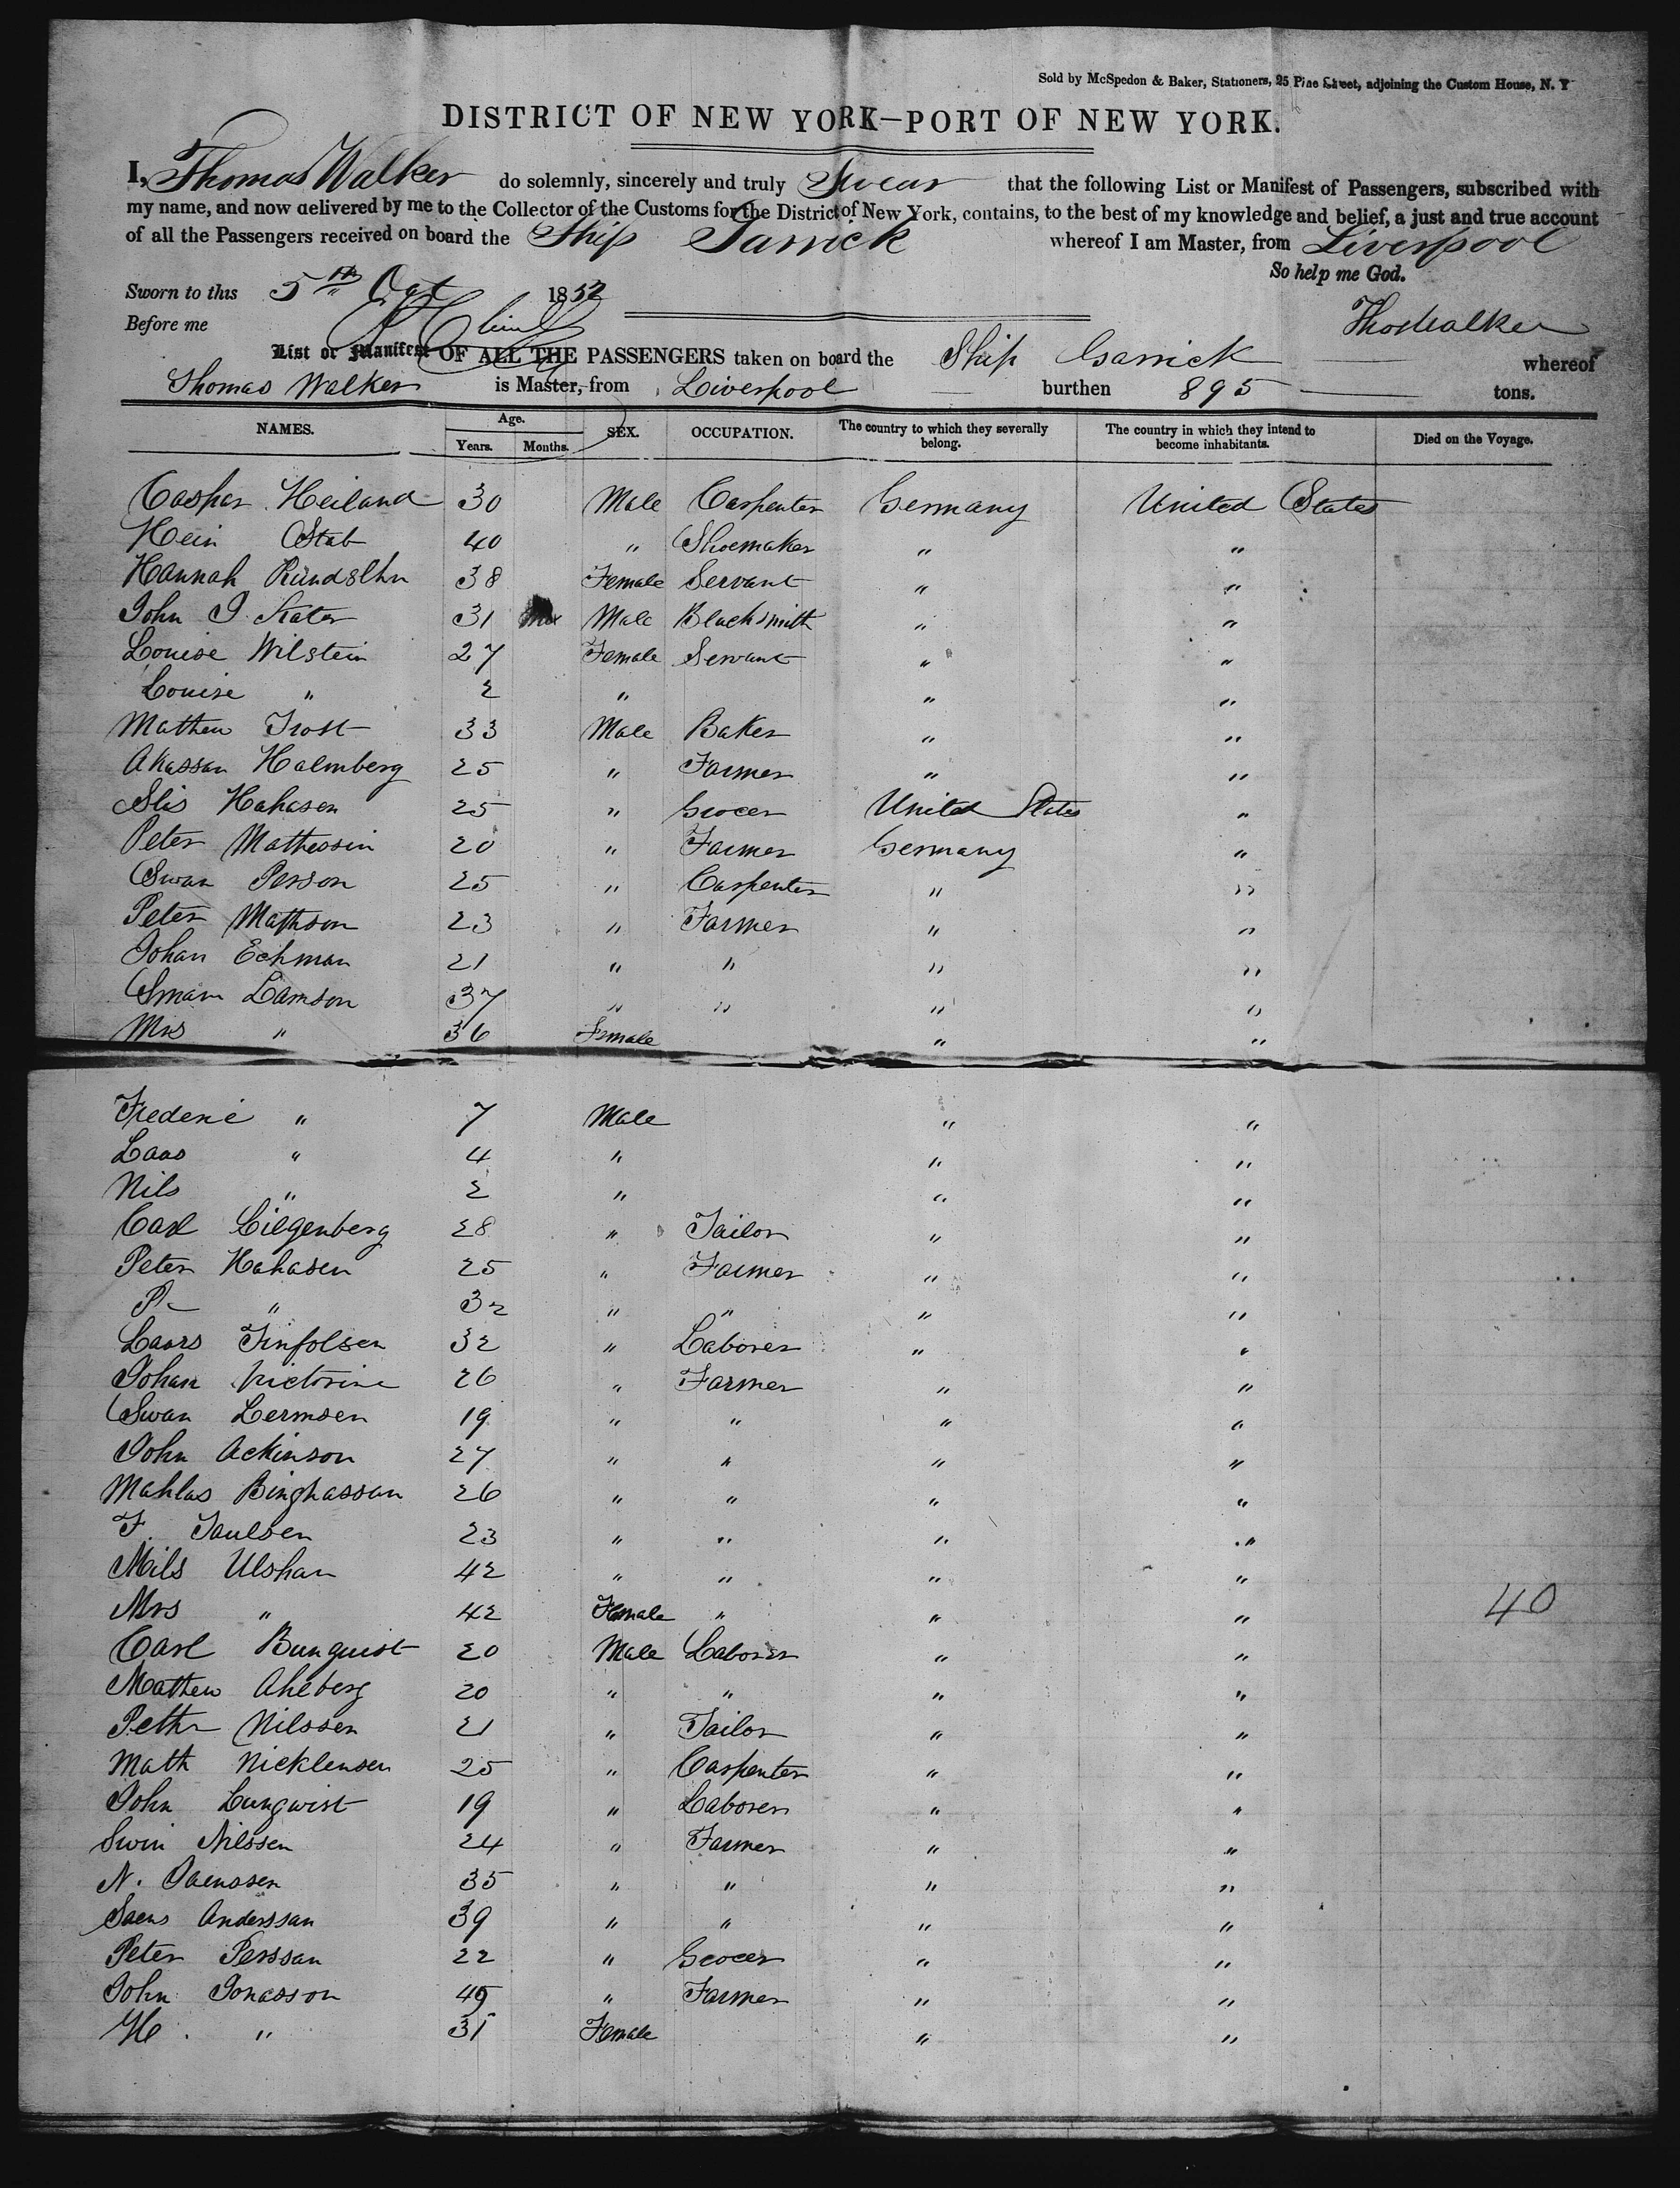 Sold by McSpedon & Baker, Stationers, 25 Pine Street, adjoining the Custom House, N. Y
DISTRICT OF NEW YORK—PORT OF NEW YORK.
I, Thomas Walker do solemnly, sincerely and truly Swear that the following List or Manifest of Passengers, subscribed with
my name, and now delivered by me to the Collector of the Customs for the District of New York, contains, to the best of my knowledge and belief, a just and true account
of all the Passengers received on board the Ship Garrick whereof I am Master, from Liverpool
So help me God.
Sworn to this 5th Oct 1852
Thos Walker
Before me
List or Manifest OF ALL THE PASSENGERS taken on board the Ship Garrick whereof
Thomas Walker is Master, from Liverpool burthen 895 tons.
NAMES. Age. Years. Months. SEX. OCCUPATION. The country to which they severally belong. The country in which they intend to become inhabitants. Died on the Voyage.
Caspar Heiland 30 Male Carpenter Germany United States
Hein Stab 40 " Shoemaker " "
Hannah 38 Female Servant " "
John J. Kater 31 Male Blacksmith " "
Louise Wilstein 27 Female Servant " "
Louise " 2 " " "
Mathew Trost 33 Male Baker " "
Akassan Halmberg 25 " Farmer " "
Slis Hahasen 25 " Grocer United States "
Peter Mathessin 20 " Farmer Germany "
Swan Persson 25 " Carpenter " "
Peter Mathson 23 " Farmer " "
Johan Echman 21 " " " "
Sman Lamson 37 " " " "
Mrs " 36 Female " "
Frederic " 7 Male " "
Laas " 4 " " "
Nils " 2 " " "
Carl Lilgenberg 28 " Tailor " "
Peter Hahasen 25 " Farmer " "
P— " 32 " " " "
Laars Tinfolsen 32 " Laborer " "
Johan Victorine 26 " Farmer " "
Swan Lermsen 19 " " " "
John Ackinson 27 " " " "
Mahlas Binghassan 26 " " " "
F. Taulsen 23 " " " "
Mils Ulshan 42 " " " "
Mrs " 42 Female " " " 40
Carl Bunquist 20 Male Laborer " "
Mathew Aheberg 20 " " " "
Pethr Nilssen 21 " Tailor " "
Math Nicklensen 25 " Carpenter " "
John Lungwist 19 " Laborer " "
Swin Nilssen 24 " Farmer " "
N. 35 " " " "
Saens Anderssan 39 " " " "
Peter Perssan 22 " Grocer " "
John Jonasson 45 " Farmer " "
H. " 31 Female " "